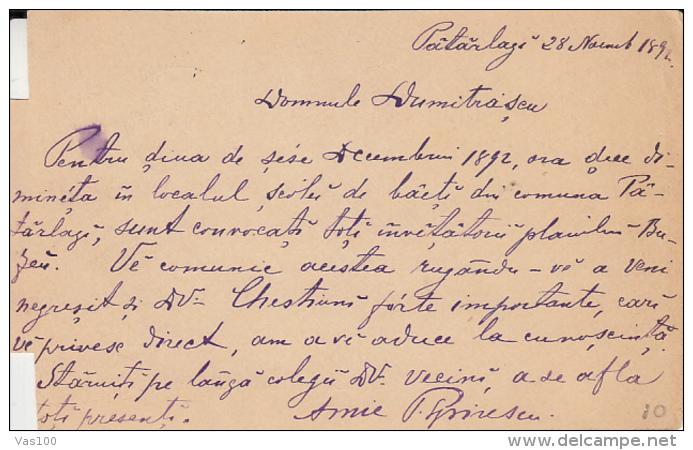 Pătărlagi 28 Noemb 1892.
Domnule Dumitrașcu
Pentru diua de șése Decembrie 1892, ora dece di-
minéța în localul școlei de băeți din comuna Pă-
tărlagi, sunt convocați toți învĕțătorii plaiului Bu-
zeŭ. Vĕ comunic acestea rugându-vĕ a veni
negreșit și Dv- Chestiuni fórte importante, cari
vĕ privesc direct, am a vĕ aduce la cunoscință.
Stăruiți pe lângă colegii Dv. vecini, a se afla
toți presenți. Amic
10
Vas100
www.delcampe.net